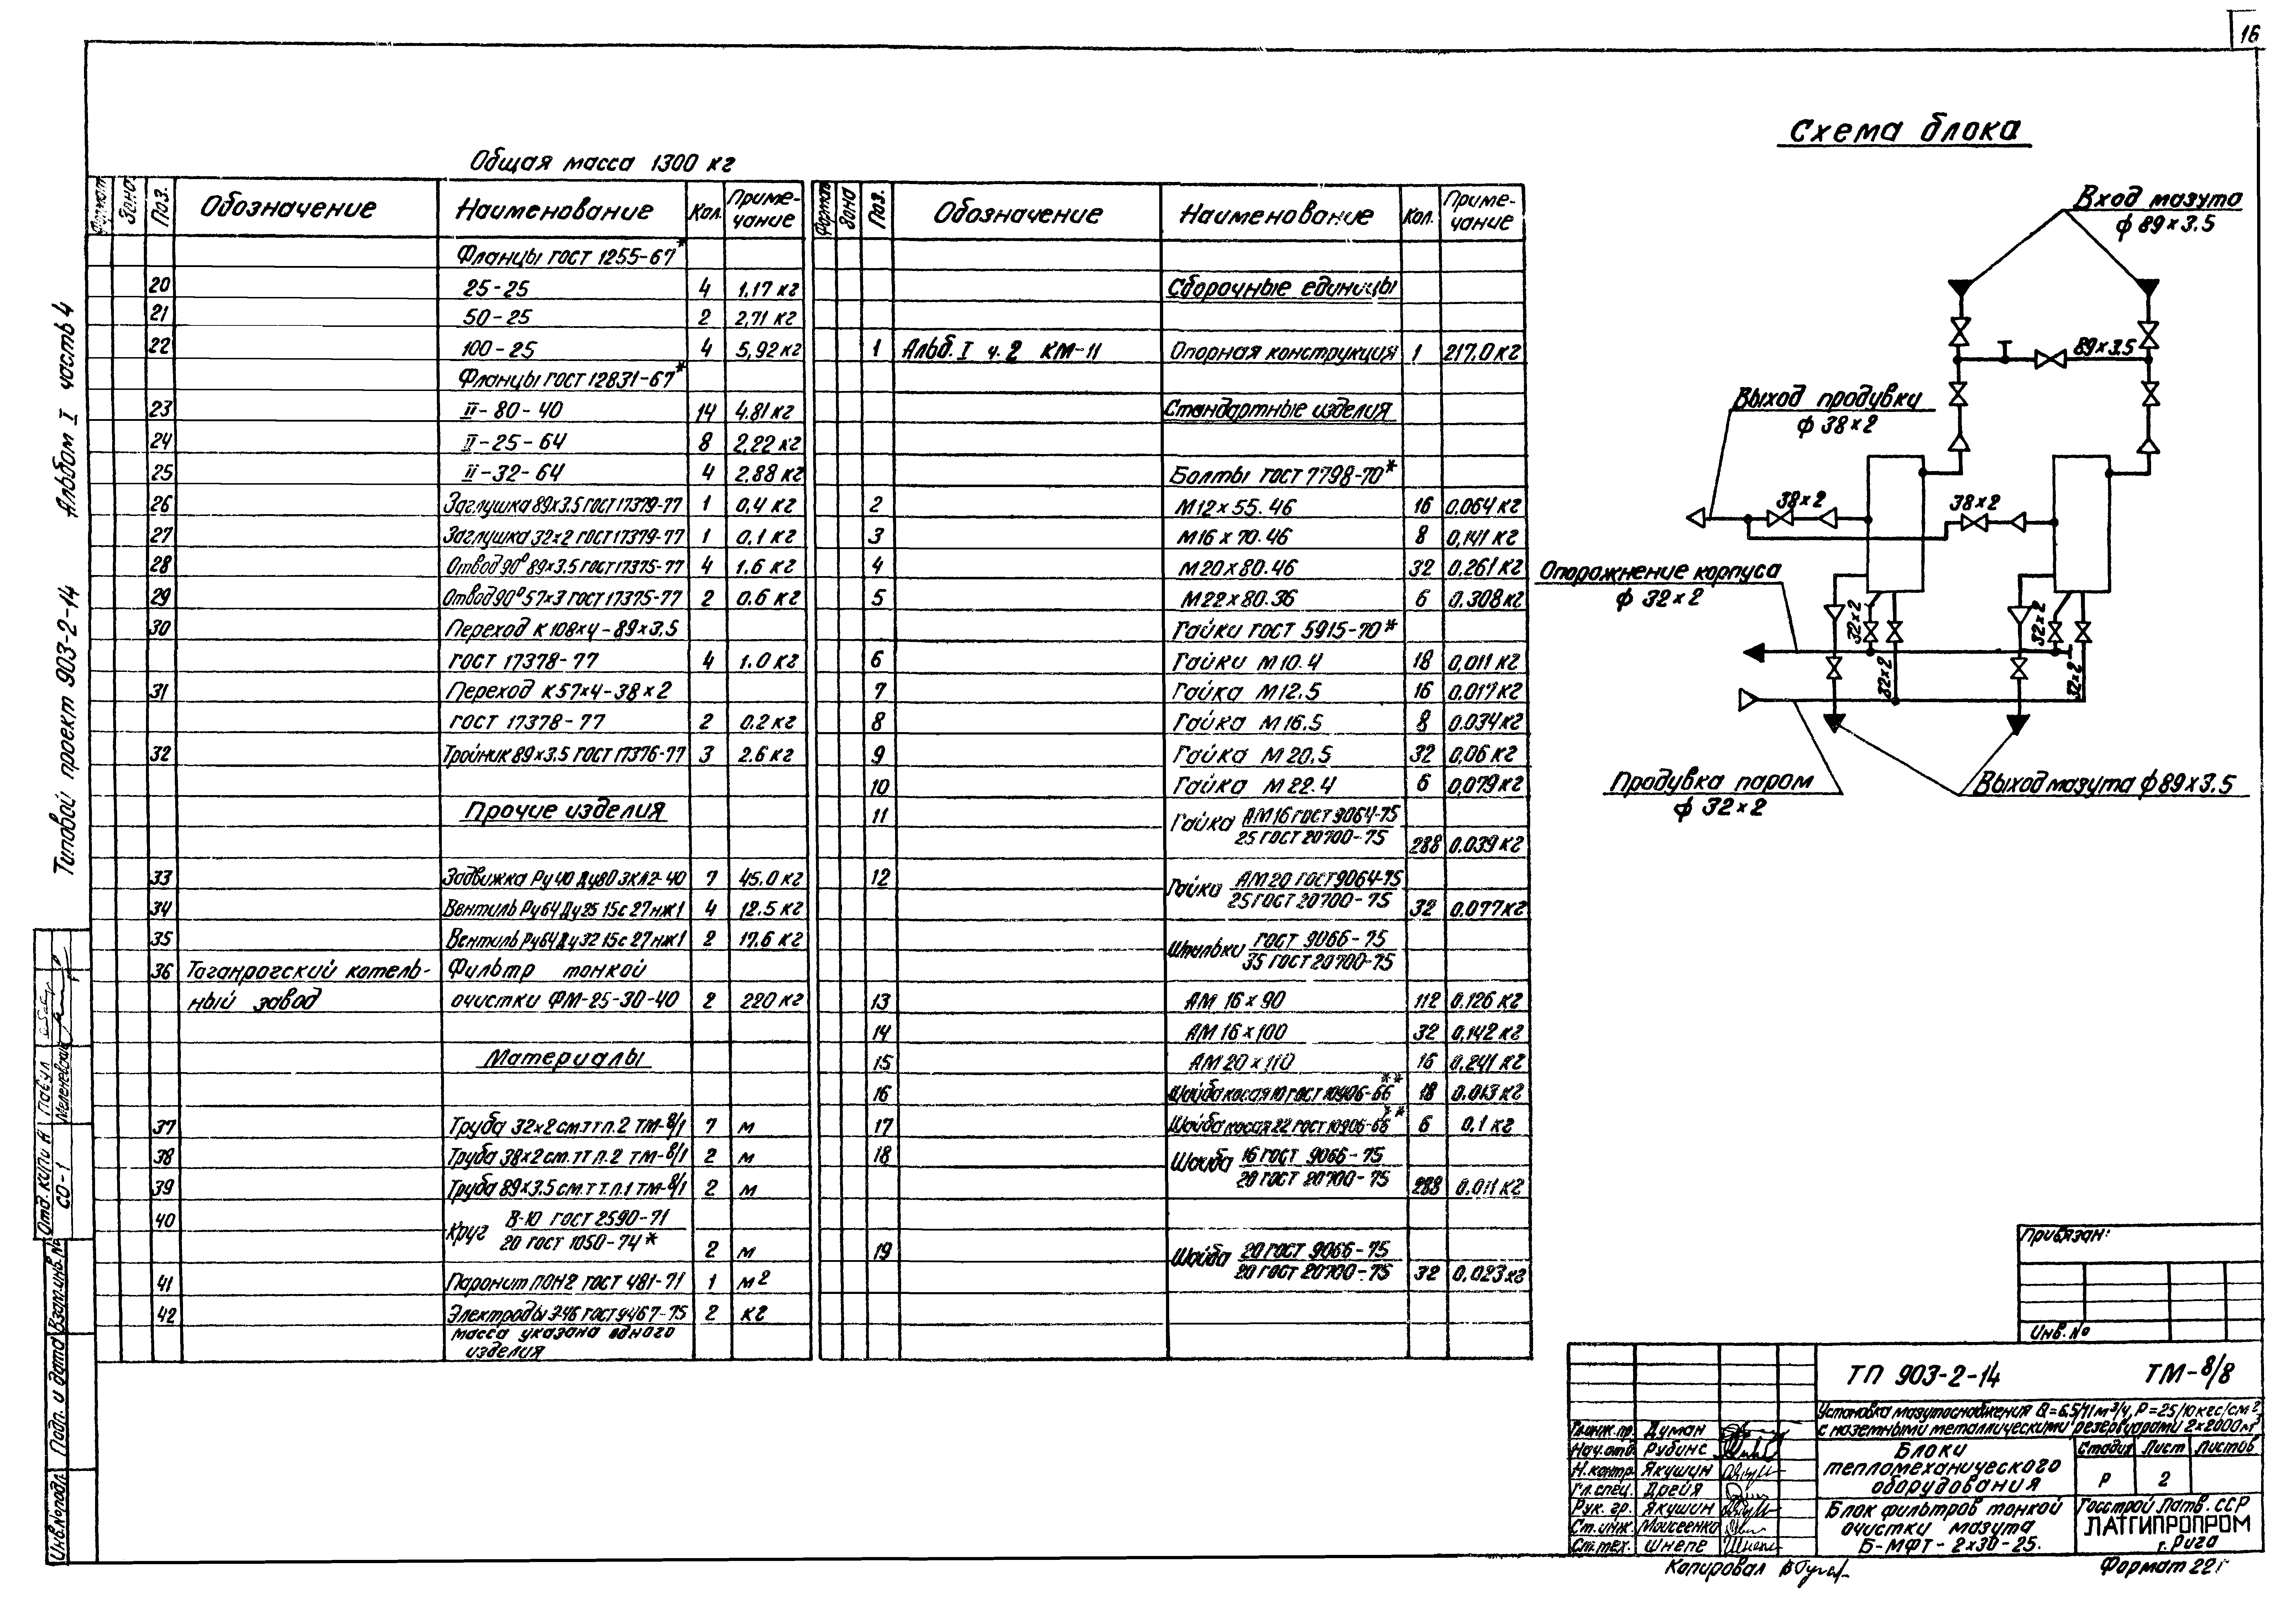 16
Схема блока
Общая масса 1300 кг
Формат Зона Поз. Обозначение Наименование Кол. Примечание
Фланцы ГОСТ 1255-67*
20 25-25 4 1,17 кг
21 50-25 2 2,71 кг
22 100-25 4 5,92 кг
Фланцы ГОСТ 12831-67*
23 II-80-40 14 4.81 кг
24 II-25-64 8 2,22 кг
25 II-32-64 4 2,88 кг
26 Заглушка 89×3.5 ГОСТ 17379-77 1 0,4 кг
27 Заглушка 32×2 ГОСТ 17379-77 1 0,1 кг
28 Отвод 90° 89×3.5 ГОСТ 17375-77 4 1.6 кг
29 Отвод 90° 57×3 ГОСТ 17375-77 2 0.6 кг
30 Переход К 108×4-89×3,5
ГОСТ 17378-77 4 1.0 кг
31 Переход К 57×4-38×2
ГОСТ 17378-77 2 0.2 кг
32 Тройник 89×3,5 ГОСТ 17376-77 3 2.6 кг
Прочие изделия
33 Задвижка Ру 40 Ду80 ЗКЛ2-40 7 45.0 кг
34 Вентиль Ру64 Ду 25 15с 27нж1 4 12.5 кг
35 Вентиль Ру64 Ду 32 15с 27нж1 2 17.6 кг
36 Таганрогский котель- Фильтр тонкой
ный завод очистки ФМ-25-30-40 2 220 кг
Материалы
37 Труба 32×2 см.тт п.2 ТМ-8/1 7 м
38 Труба 38×2 см.тт п.2 ТМ-8/1 2 м
39 Труба 89×3.5 см.т т.п.1 ТМ-8/1 2 м
40 Круг В-10 ГОСТ 2590-71
20 ГОСТ 1050-74* 2 м
41 Паронит ПОН2 ГОСТ 481-71 1 м2
42 Электроды Э-46 ГОСТ 9467-75 2 кг
масса указана одного
изделия
Формат Зона Поз. Обозначение Наименование Кол. Примечание
Сборочные единицы
1 Альб. I ч. 2 КМ-11 Опорная конструкция 1 217.0 кг
Стандартные изделия
Болты ГОСТ 7798-70*
2 М12×55.46 16 0.064 кг
3 М16×70.46 8 0,141 кг
4 М20×80.46 32 0,261 кг
5 М22×80.36 6 0.308 кг
Гайки ГОСТ 5915-70*
6 Гайки М10.4 18 0,011 кг
7 Гайка М12.5 16 0.017 кг
8 Гайка М16.5 8 0.034 кг
9 Гайка М20.5 32 0,06 кг
10 Гайка М22.4 6 0,079 кг
11 Гайка АМ16 ГОСТ 9064-75
25 ГОСТ 20700-75 288 0.039 кг
12 Гайка АМ20 ГОСТ 9064-75
25 ГОСТ 20700-75 32 0.077 кг
Шпильки ГОСТ 9066-75
35 ГОСТ 20700-75
13 АМ 16×90 112 0.126 кг
14 АМ 16×100 32 0,142 кг
15 АМ 20×110 16 0.241 кг
16 Шайба косая 10 ГОСТ 10906-66** 18 0.013 кг
17 Шайба косая 22 ГОСТ 10906-66** 6 0,1 кг
18 Шайба 16 ГОСТ 9066-75
20 ГОСТ 20700-75 288 0.011 кг
19 Шайба 20 ГОСТ 9066-75
20 ГОСТ 20700-75 32 0,023 кг
Вход мазута
ф 89×3.5
89×3.5
Выход продувки
ф 38×2
38×2
38×2
Опорожнение корпуса
ф 32×2
32×2
32×2
32×2
32×2
Продувка паром
ф 32×2
Выход мазута ф 89×3.5
Типовой проект 903-2-14 Альбом I часть 4
Отд. КИП и А Павул
СО-1 Меленевский
Инв.№подл. Подп. и дата Взам.инв.№
Привязан:
Инв. №
ТП 903-2-14 ТМ-8/8
Установка мазутоснабжения Q=6,5/11 м³/ч, Р=25/10 кгс/см²
с наземными металлическими резервуарами 2×2000м³
Гл.инж.пр. Думан
Нач.отд. Рубинс
Н.контр. Якушин
Гл.спец. Дрейя
Рук. гр. Якушин
Ст.инж. Моисеенко
Ст.тех. Шнепе
Блоки
тепломеханического
оборудования
Стадия Лист Листов
Р 2
Блок фильтров тонкой
очистки мазута
Б-МФТ-2×30-25.
Госстрой Латв. ССР
ЛАТГИПРОПРОМ
г. Рига
Копировал
Формат 22г